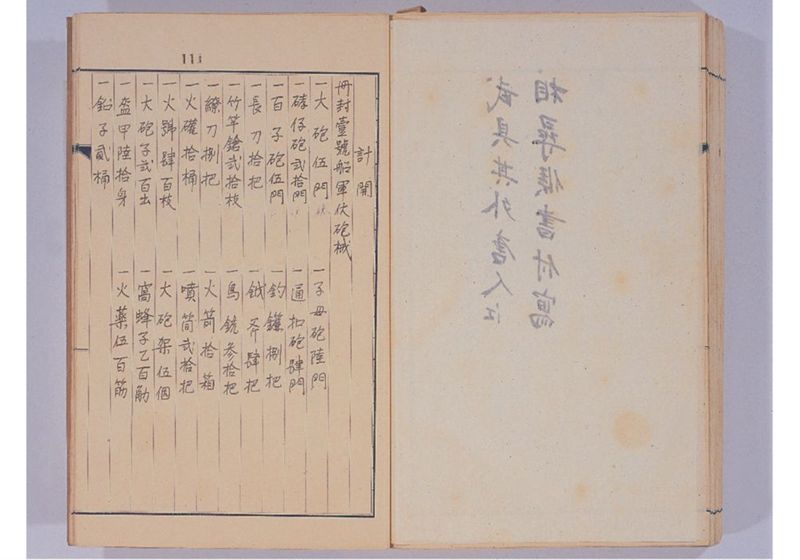 武具其外唐人江
相尋候書付寫
111
計開
冊封壹號船軍伏砲械
一大砲伍門 一子母砲陸門
一磚仔砲弐拾門 一通扣砲肆門
一百子砲伍門 一釣鐮捌把
一長刀拾把 一鉞斧肆把
一竹竿鎗弐拾枝 一鳥銃参拾把
一繚刀捌把 一火箭拾箱
一火礶拾桶 一噴筒弐拾把
一火號肆百枝 一大砲架伍個
一大砲子弐百出 一窩蜂子乙百觔
一盔甲陸拾身 一火薬伍百筋
一鉛子貳桶